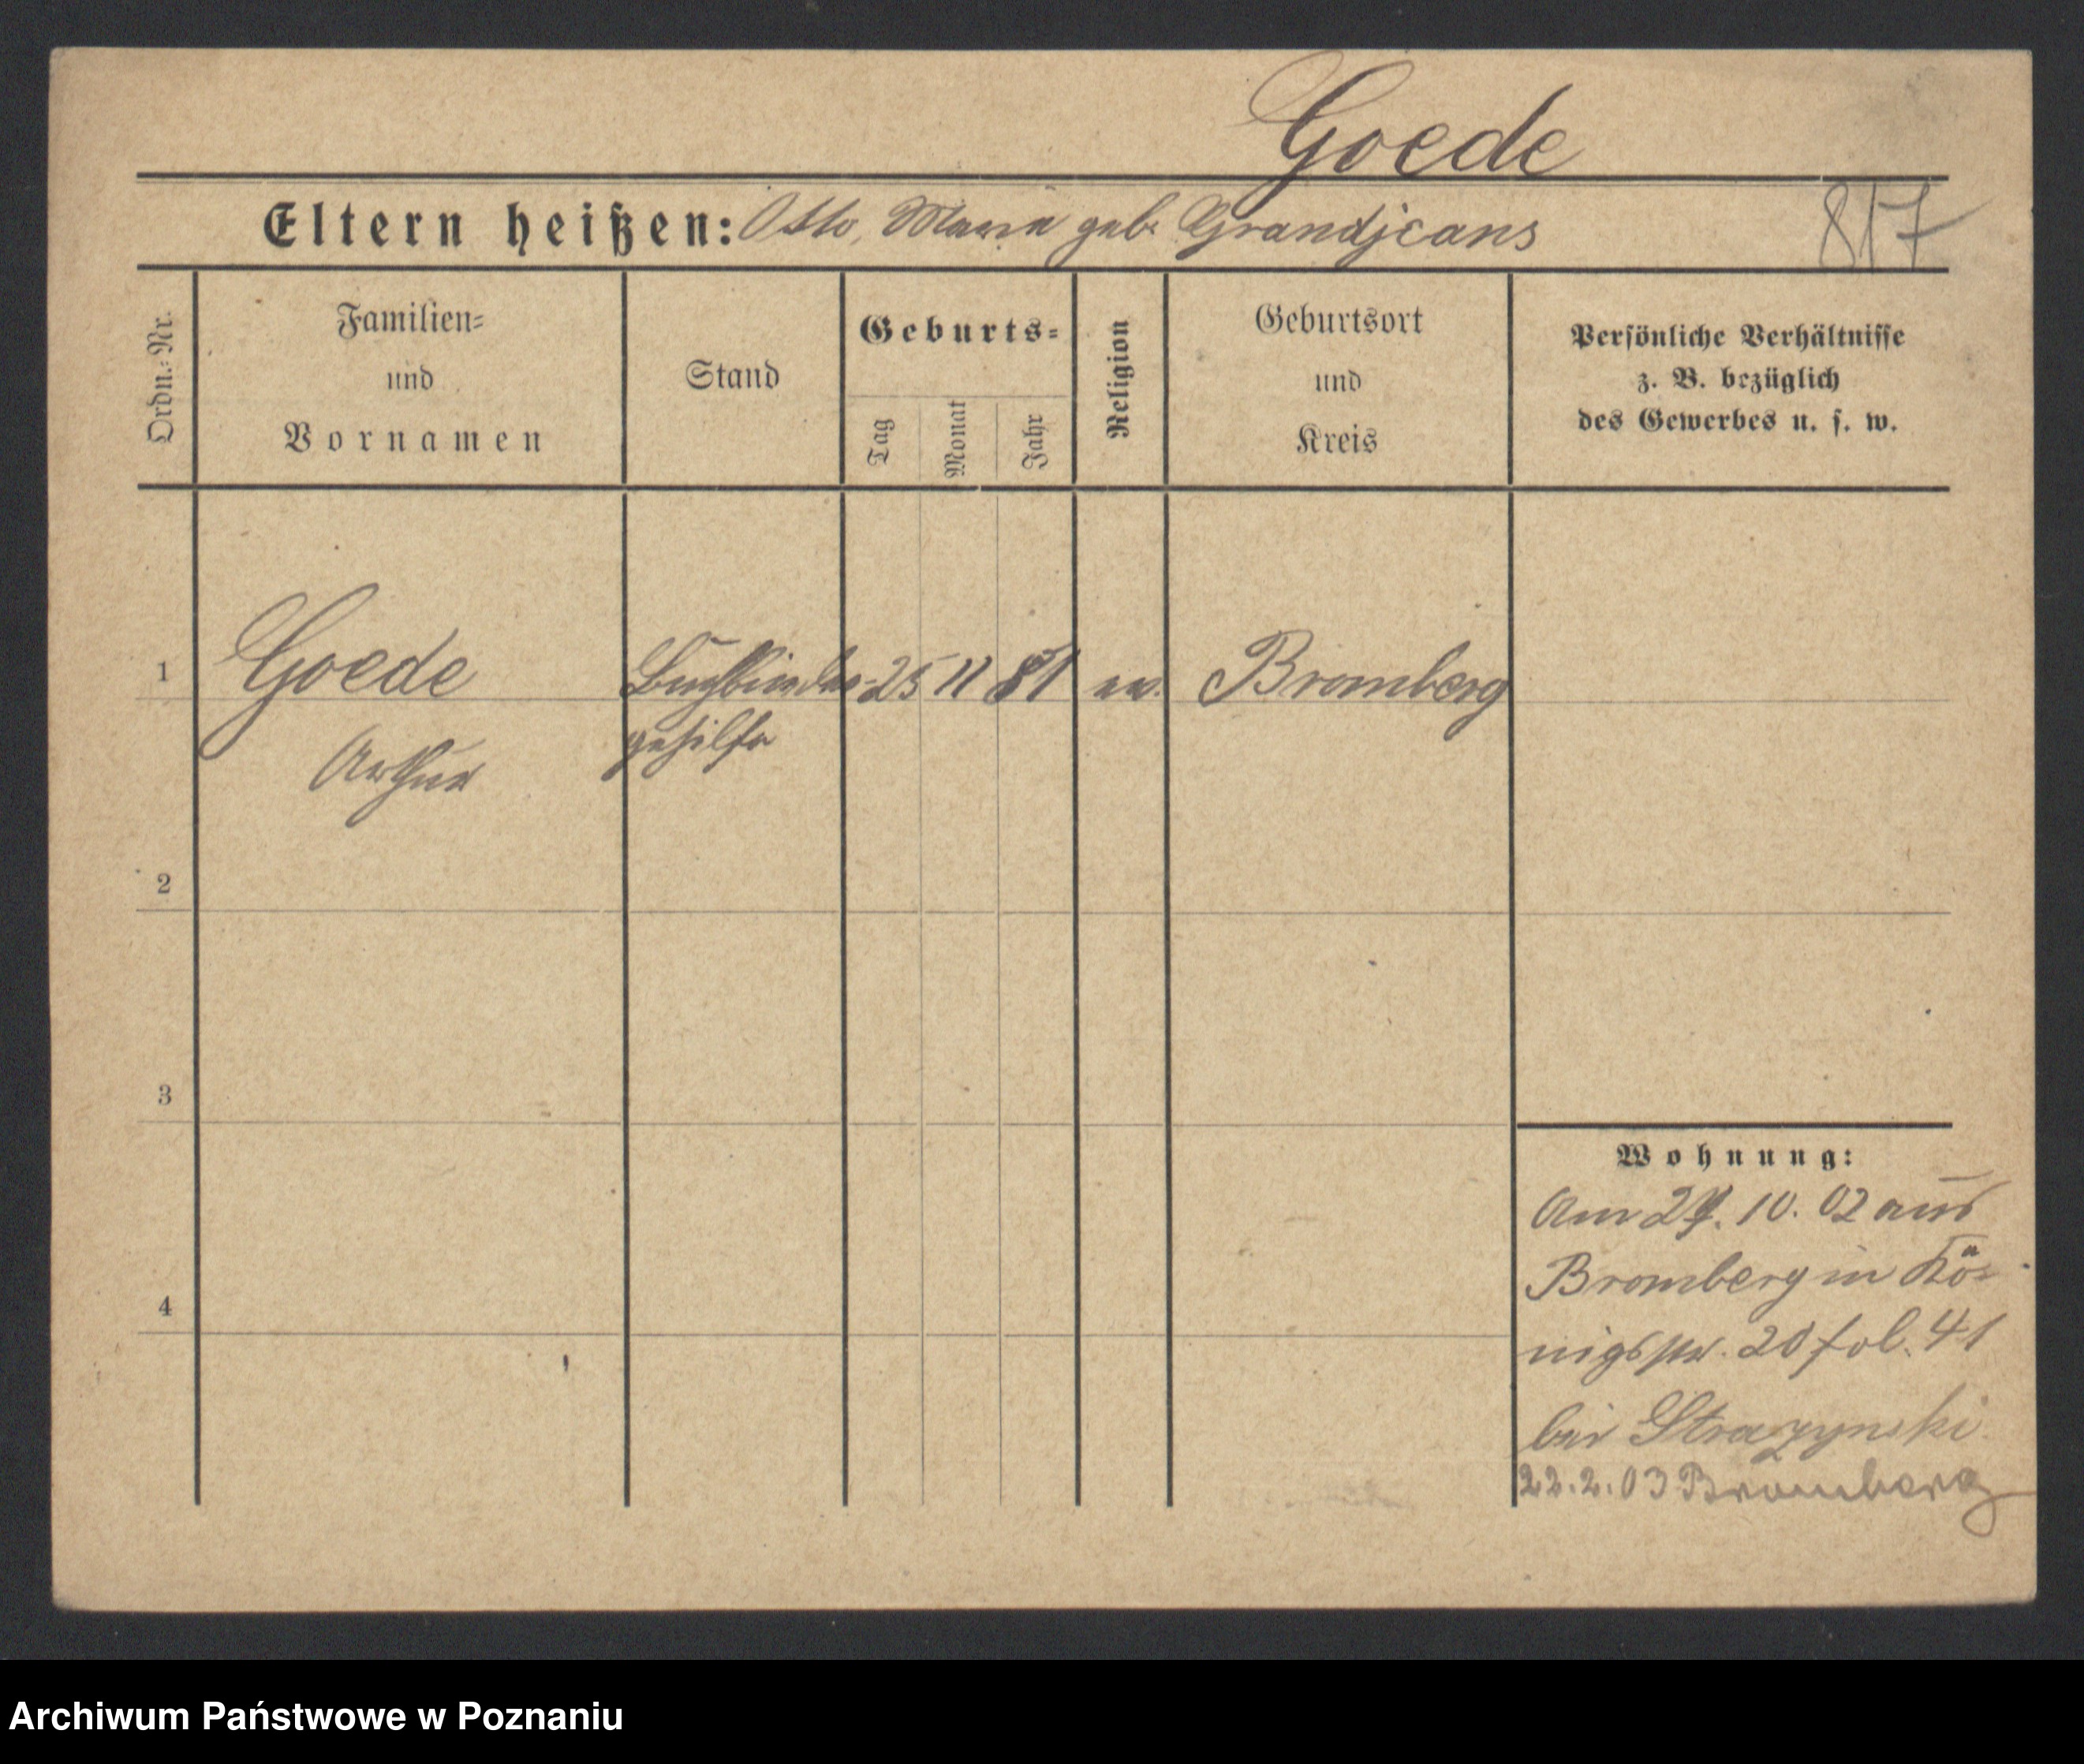 Goede
Eltern heißen: Otto, Maria geb. Grandjeans
817
Ordn.-Nr.
Familien-
und
Vornamen
Stand
Geburts-
Tag
Monat
Jahr
Religion
Geburtsort
und
Kreis
Persönliche Verhältnisse
z. B. bezüglich
des Gewerbes u. s. w.
1 Goede Buchbinder- 25 11 81 ev. Bromberg
gehilfe
Arthur
2
3
4
Wohnung:
Am 29. 10. 02 aus
Bromberg in Kö-
nigspl. 20 fol. 41
bei Strazynski
22.2.03 Bromberg
Archiwum Państwowe w Poznaniu